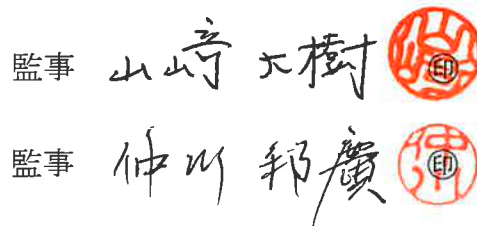 監事 山﨑 大樹 ㊞
監事 仲川 邦廣 ㊞